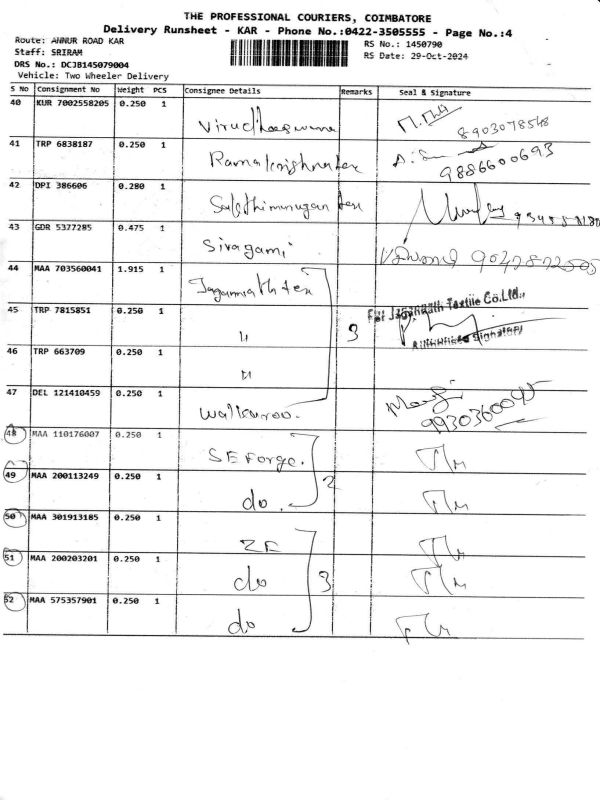 THE PROFESSIONAL COURIERS, COIMBATORE
Delivery Runsheet - KAR - Phone No.:0422-3505555 - Page No.:4
Route: ANNUR ROAD KAR
RS No.: 1450790
Staff: SRIRAM
RS Date: 29-Oct-2024
DRS No.: DCJB145079004
Vehicle: Two Wheeler Delivery
S No Consignment No Weight PCS Consignee Details Remarks Seal & Signature
40 KUR 7002558205 0.250 1
8903078548
41 TRP 6838187 0.250 1 Ramakrishna tex
9886600693
42 DPI 386606 0.280 1 Sakthimurugan tex
43 GDR 5377285 0.475 1 Sivagami
44 MAA 703560041 1.915 1 Jagannath tex
45 TRP 7815851 0.250 1 " 3 For Jagannath Textile Co.Ltd.,
Authorised Signatory
46 TRP 663709 0.250 1 "
47 DEL 121410459 0.250 1 Walkaroo.
48 MAA 110176007 0.250 1 SE Forge.
49 MAA 200113249 0.250 1 do. 2
50 MAA 301913185 0.250 1 ZF
51 MAA 200203201 0.250 1 do 3
52 MAA 575357901 0.250 1 do